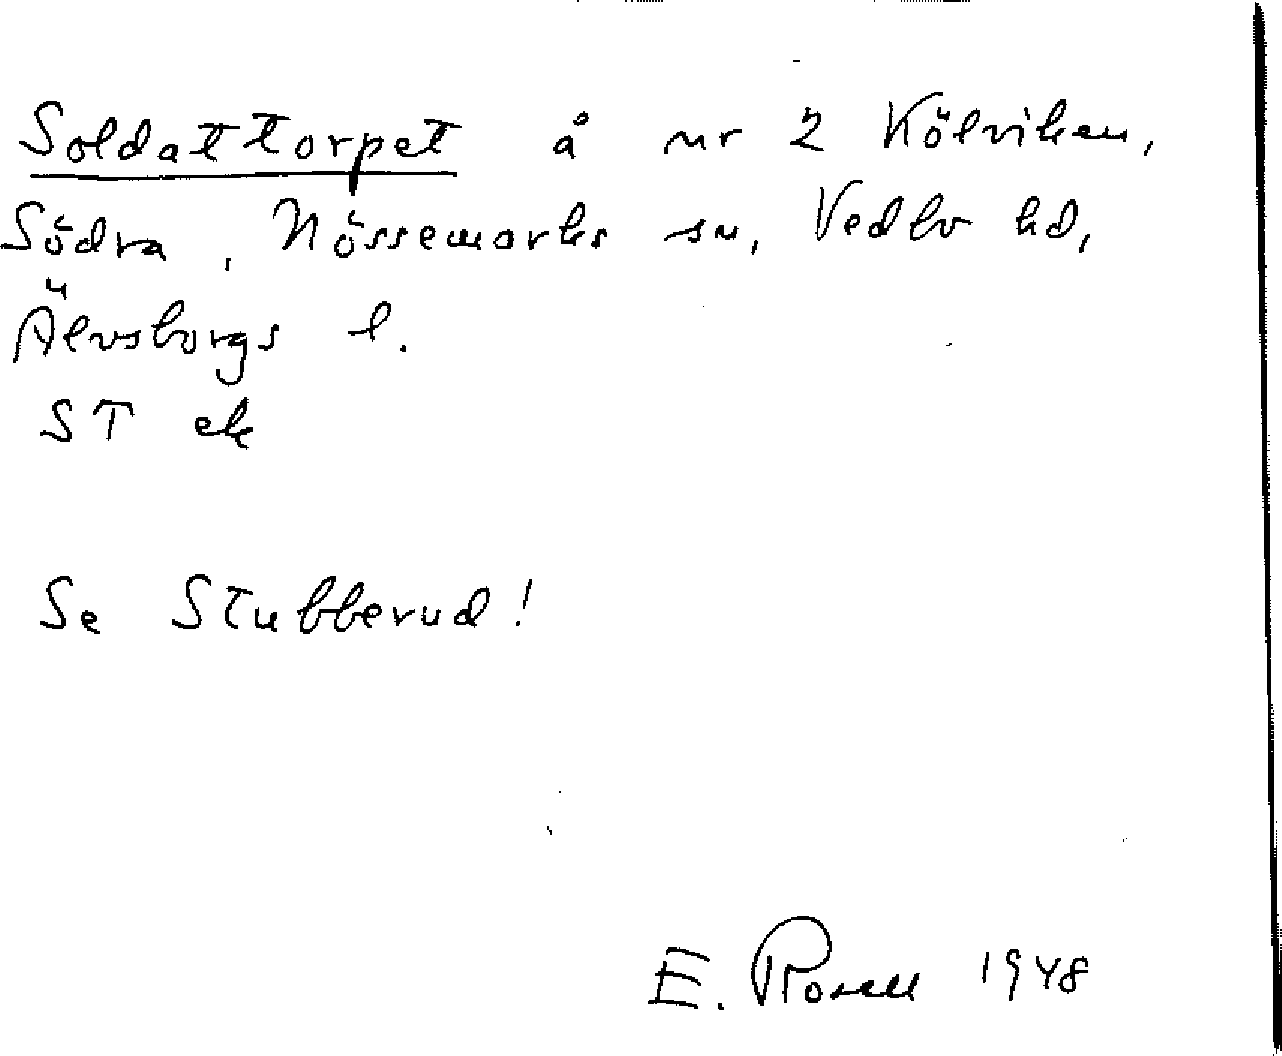 Soldattorpet å nr 2 Kölviken,
Södra, Nössemarks sn, Vedbo hd,
Älvsborgs l.
ST ek
Se Stubberud!
E. Rosell 1948